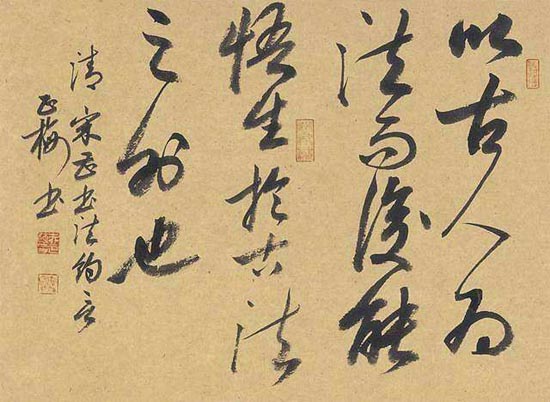 以古人為
法而後能
悟生於古法
之外也
清宋曹書法約言
正梅書